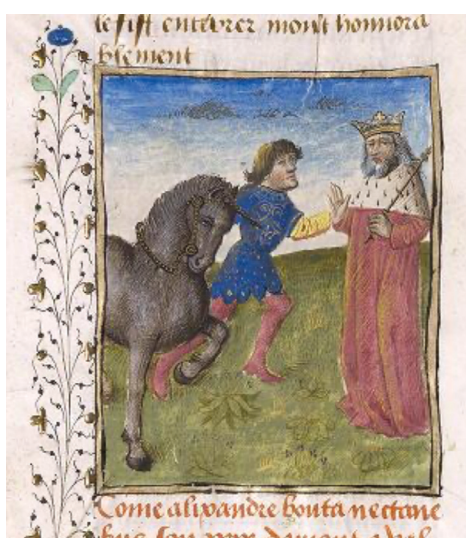 le fist enterrer moult honnora
blement
Come alixandre bouta nectane
bus son